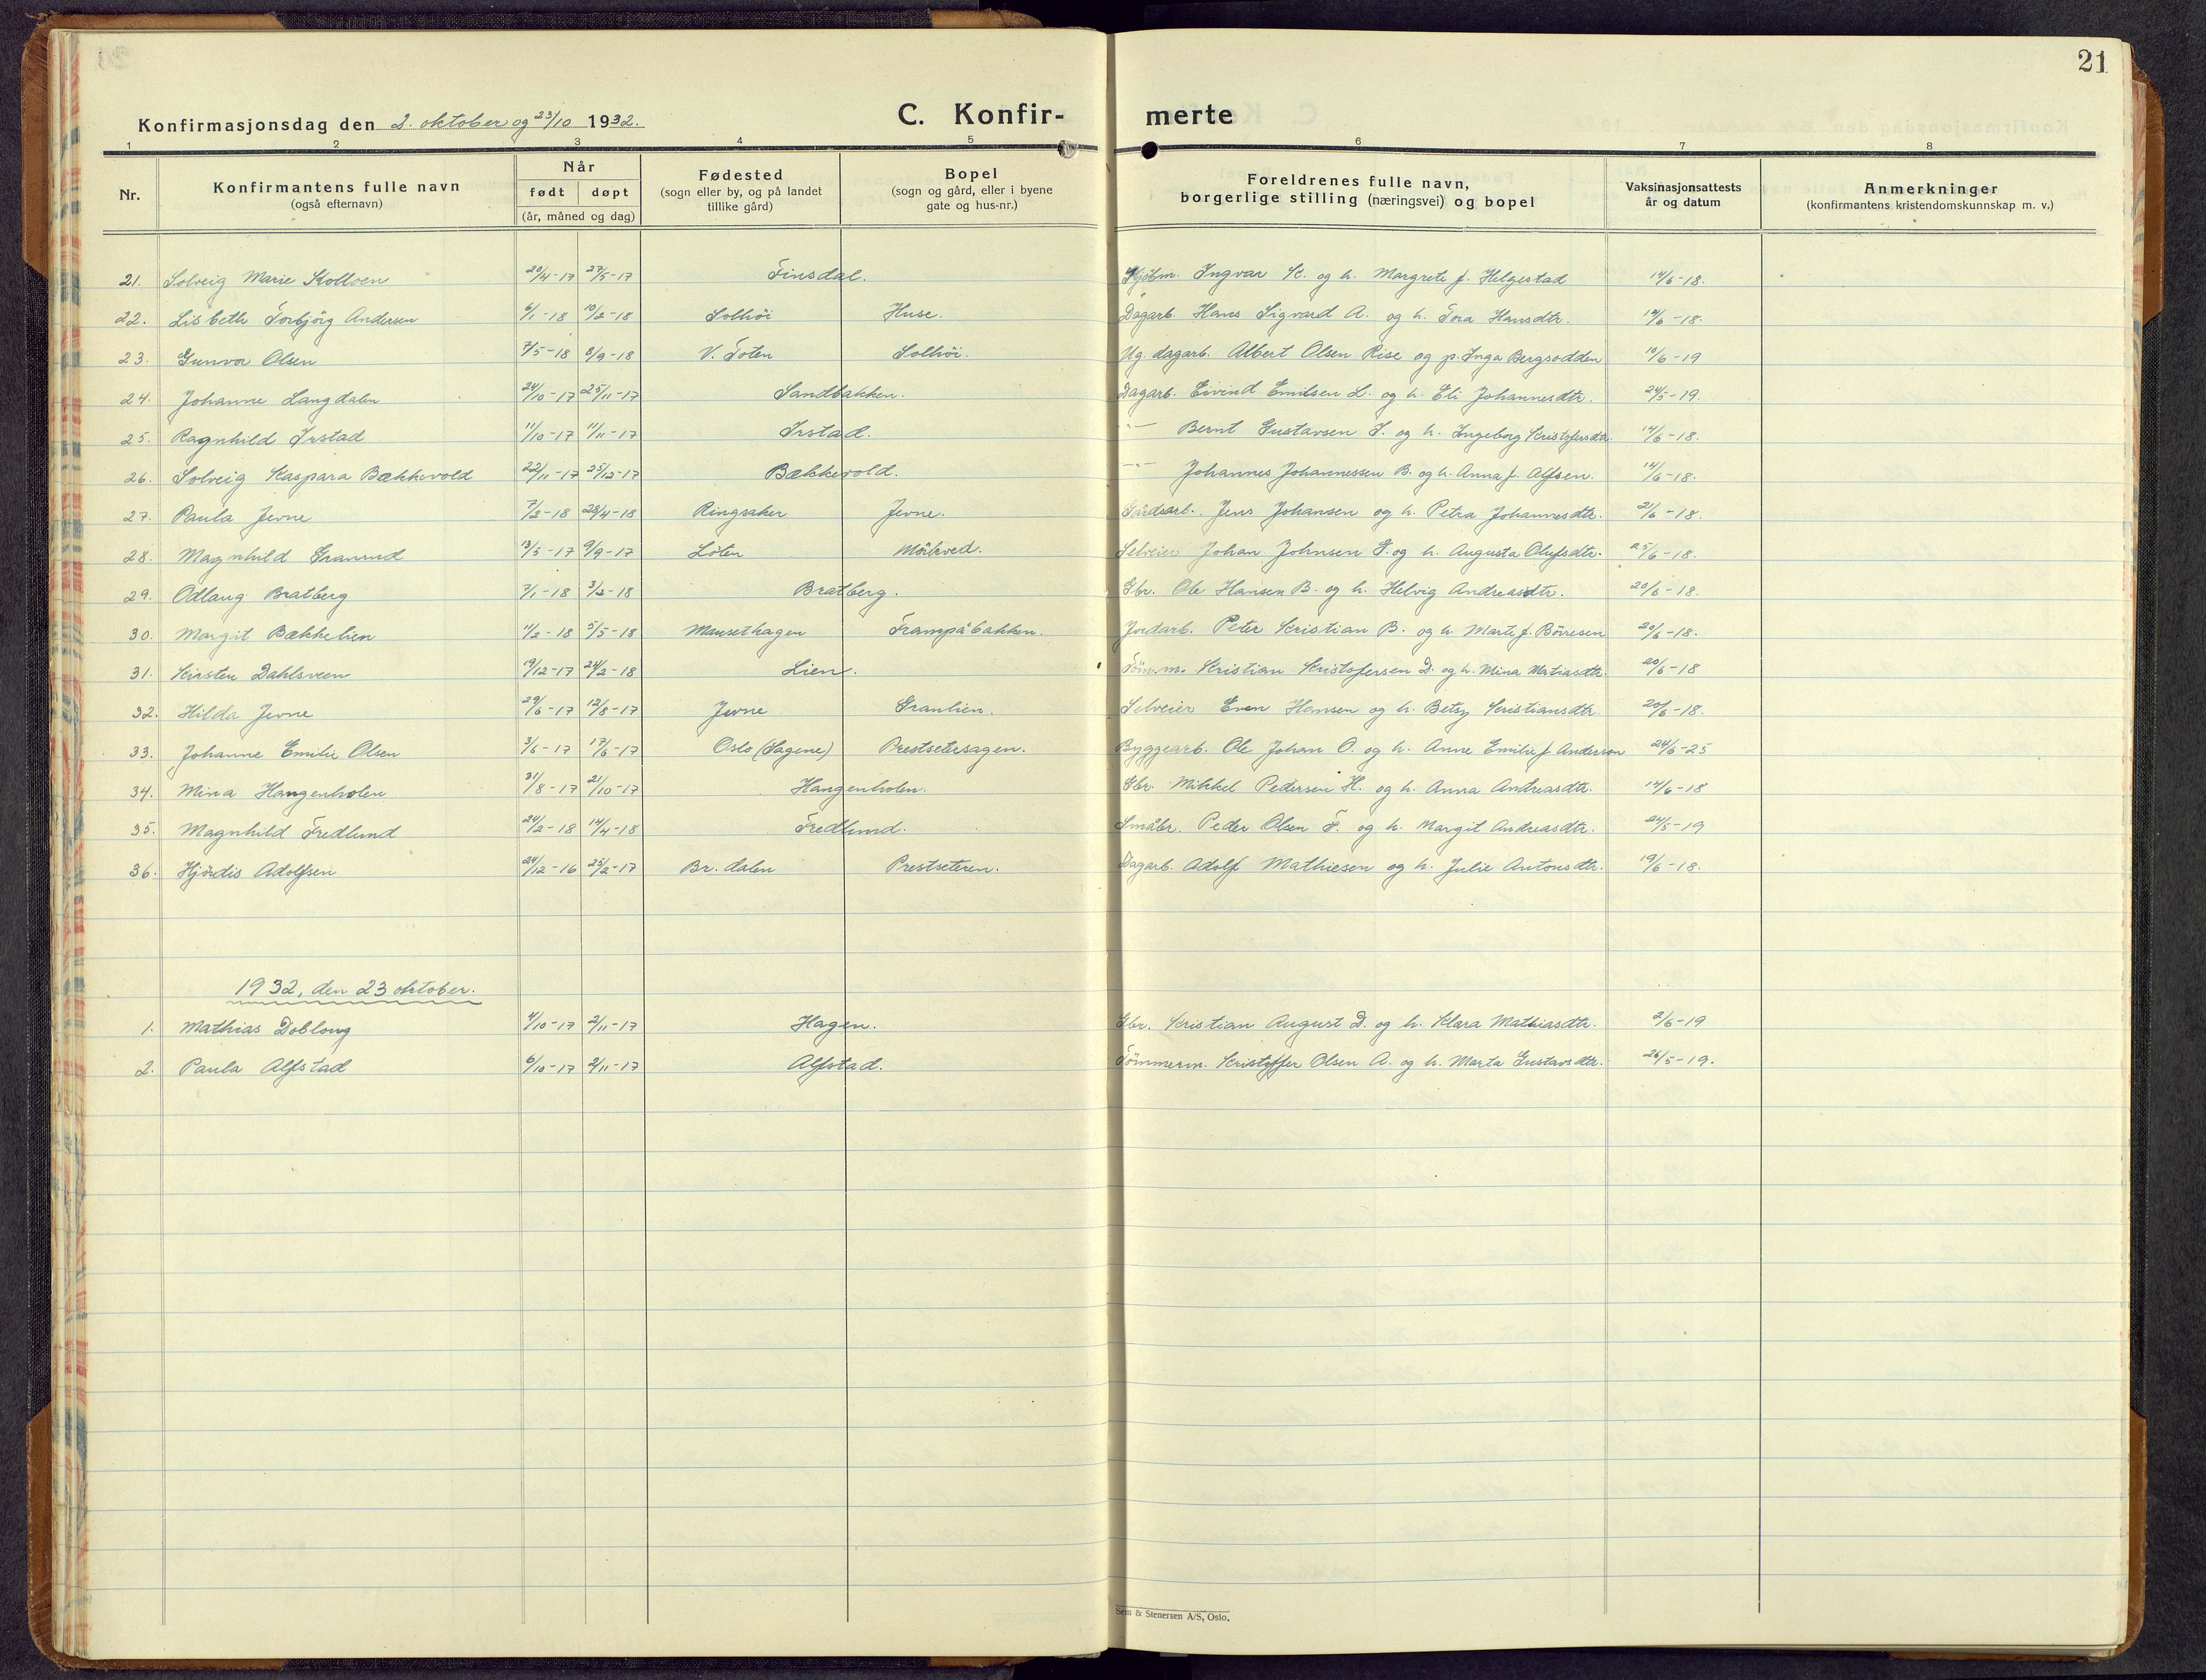 21
Konfirmasjonsdag den 2. oktober og 23/10 1932. C. Konfir- merte
1 2 3 4 5 6 7 8
Nr. Konfirmantens fulle navn (også efternavn) Når født døpt (år, måned og dag) Fødested (sogn eller by, og på landet tillike gård) Bopel (sogn og gård, eller i byene gate og hus-nr.) Foreldrenes fulle navn, borgerlige stilling (næringsvei) og bopel Vaksinasjonsattests år og datum Anmerkninger (konfirmantens kristendomskunnskap m. v.)
21. Solveig Marie Kolloen 20/4-17 27/5-17 Finsdal. Kjøbm. Ingvar K. og h. Margrete f. Helgestad 14/6-18.
22. Lisbeth Torbjörg Andersen 6/1-18 10/2-18 Solhöi Huse. Dagarb. Hans Sigvard A. og h. Tora Hansdtr. 14/6-18.
23. Gunvor Olsen 7/5-18 8/9-18 V. Toten Solhöi. Ug. dagarb. Albert Olsen Rise og p. Inga Bergsodden 10/6-19
24. Johanne Langdalen 24/10-17 25/11-17 Sandbakken. Dagarb. Eivind Emilsen L. og h. Eli Johannesdtr. 24/5-19.
25. Ragnhild Irstad 11/10-17 11/11-17 Irstad. -"- Bernt Gustavsen I. og h. Ingeborg Kristofersdtr. 14/6-18.
26. Solveig Kaspara Bækkevold 22/11-17 25/12-17 Bækkevold. -"- Johannes Johannessen B. og h. Anna f. Alfsen. 14/6-18.
27. Paula Jevne 7/2-18 28/4-18 Ringsaker Jevne. Gårdsarb. Jens Johansen og h. Petra Johannesdtr. 21/6-18.
28. Magnhild Granrud 13/5-17 9/9-17 Löten Mörkved. Selveier Johan Johnsen G. og h. Augusta Olufsdtr. 25/6-18.
29. Odlaug Bratberg 7/1-18 3/2-18 Bratberg. Gbr. Ole Hansen B. og h. Helvig Andreasdtr. 20/6-18.
30. Margit Bækkelien 11/2-18 5/5-18 Mausethagen Frampåbakken. Jordarb. Peter Kristian B. og h. Marte f. Börresen 20/6-18.
31. Kirsten Dahlsveen 19/12-17 24/2-18 Lien. Töm.m. Kristian Kristofersen D. og h. Mina Matiasdtr. 20/6-18
32. Hilda Jevne 29/6-17 12/8-17 Jevne Granlien. Selveier Even Hansen og h. Betsy Kristiansdtr. 20/6-18.
33. Johanne Emilie Olsen 3/6-17 17/6-17 Oslo (Sagene) Prestsetersagen. Byggearb. Ole Johan O. og h. Anne Emilie f. Anderson 24/6-25
34. Mina Haugenholen 31/8-17 21/10-17 Haugenholen. Gbr. Mikkel Pedersen H. og h. Anna Andreasdtr. 14/6-18
35. Magnhild Fredlund 24/2-18 14/4-18 Fredlund. Småbr. Peder Olsen F. og h. Margit Andreasdtr. 24/5-19
36. Hjördis Adolfsen 24/12-16 25/2-17 Br. dalen Prestseteren. Dagarb. Adolf Mathiesen og h. Julie Antonsdtr. 19/6-18.
1932, den 23 oktober.
1. Mathias Dobloug 4/10-17 2/11-17 Hagen. Gbr. Kristian August D. og h. Klara Mathiasdtr. 2/6-19
2. Paula Alfstad 6/10-17 2/11-17 Alfstad. Tömmerm. Kristoffer Olsen A. og h. Marta Gustavsdtr. 26/5-19.
Sem & Stenersen A/S, Oslo.